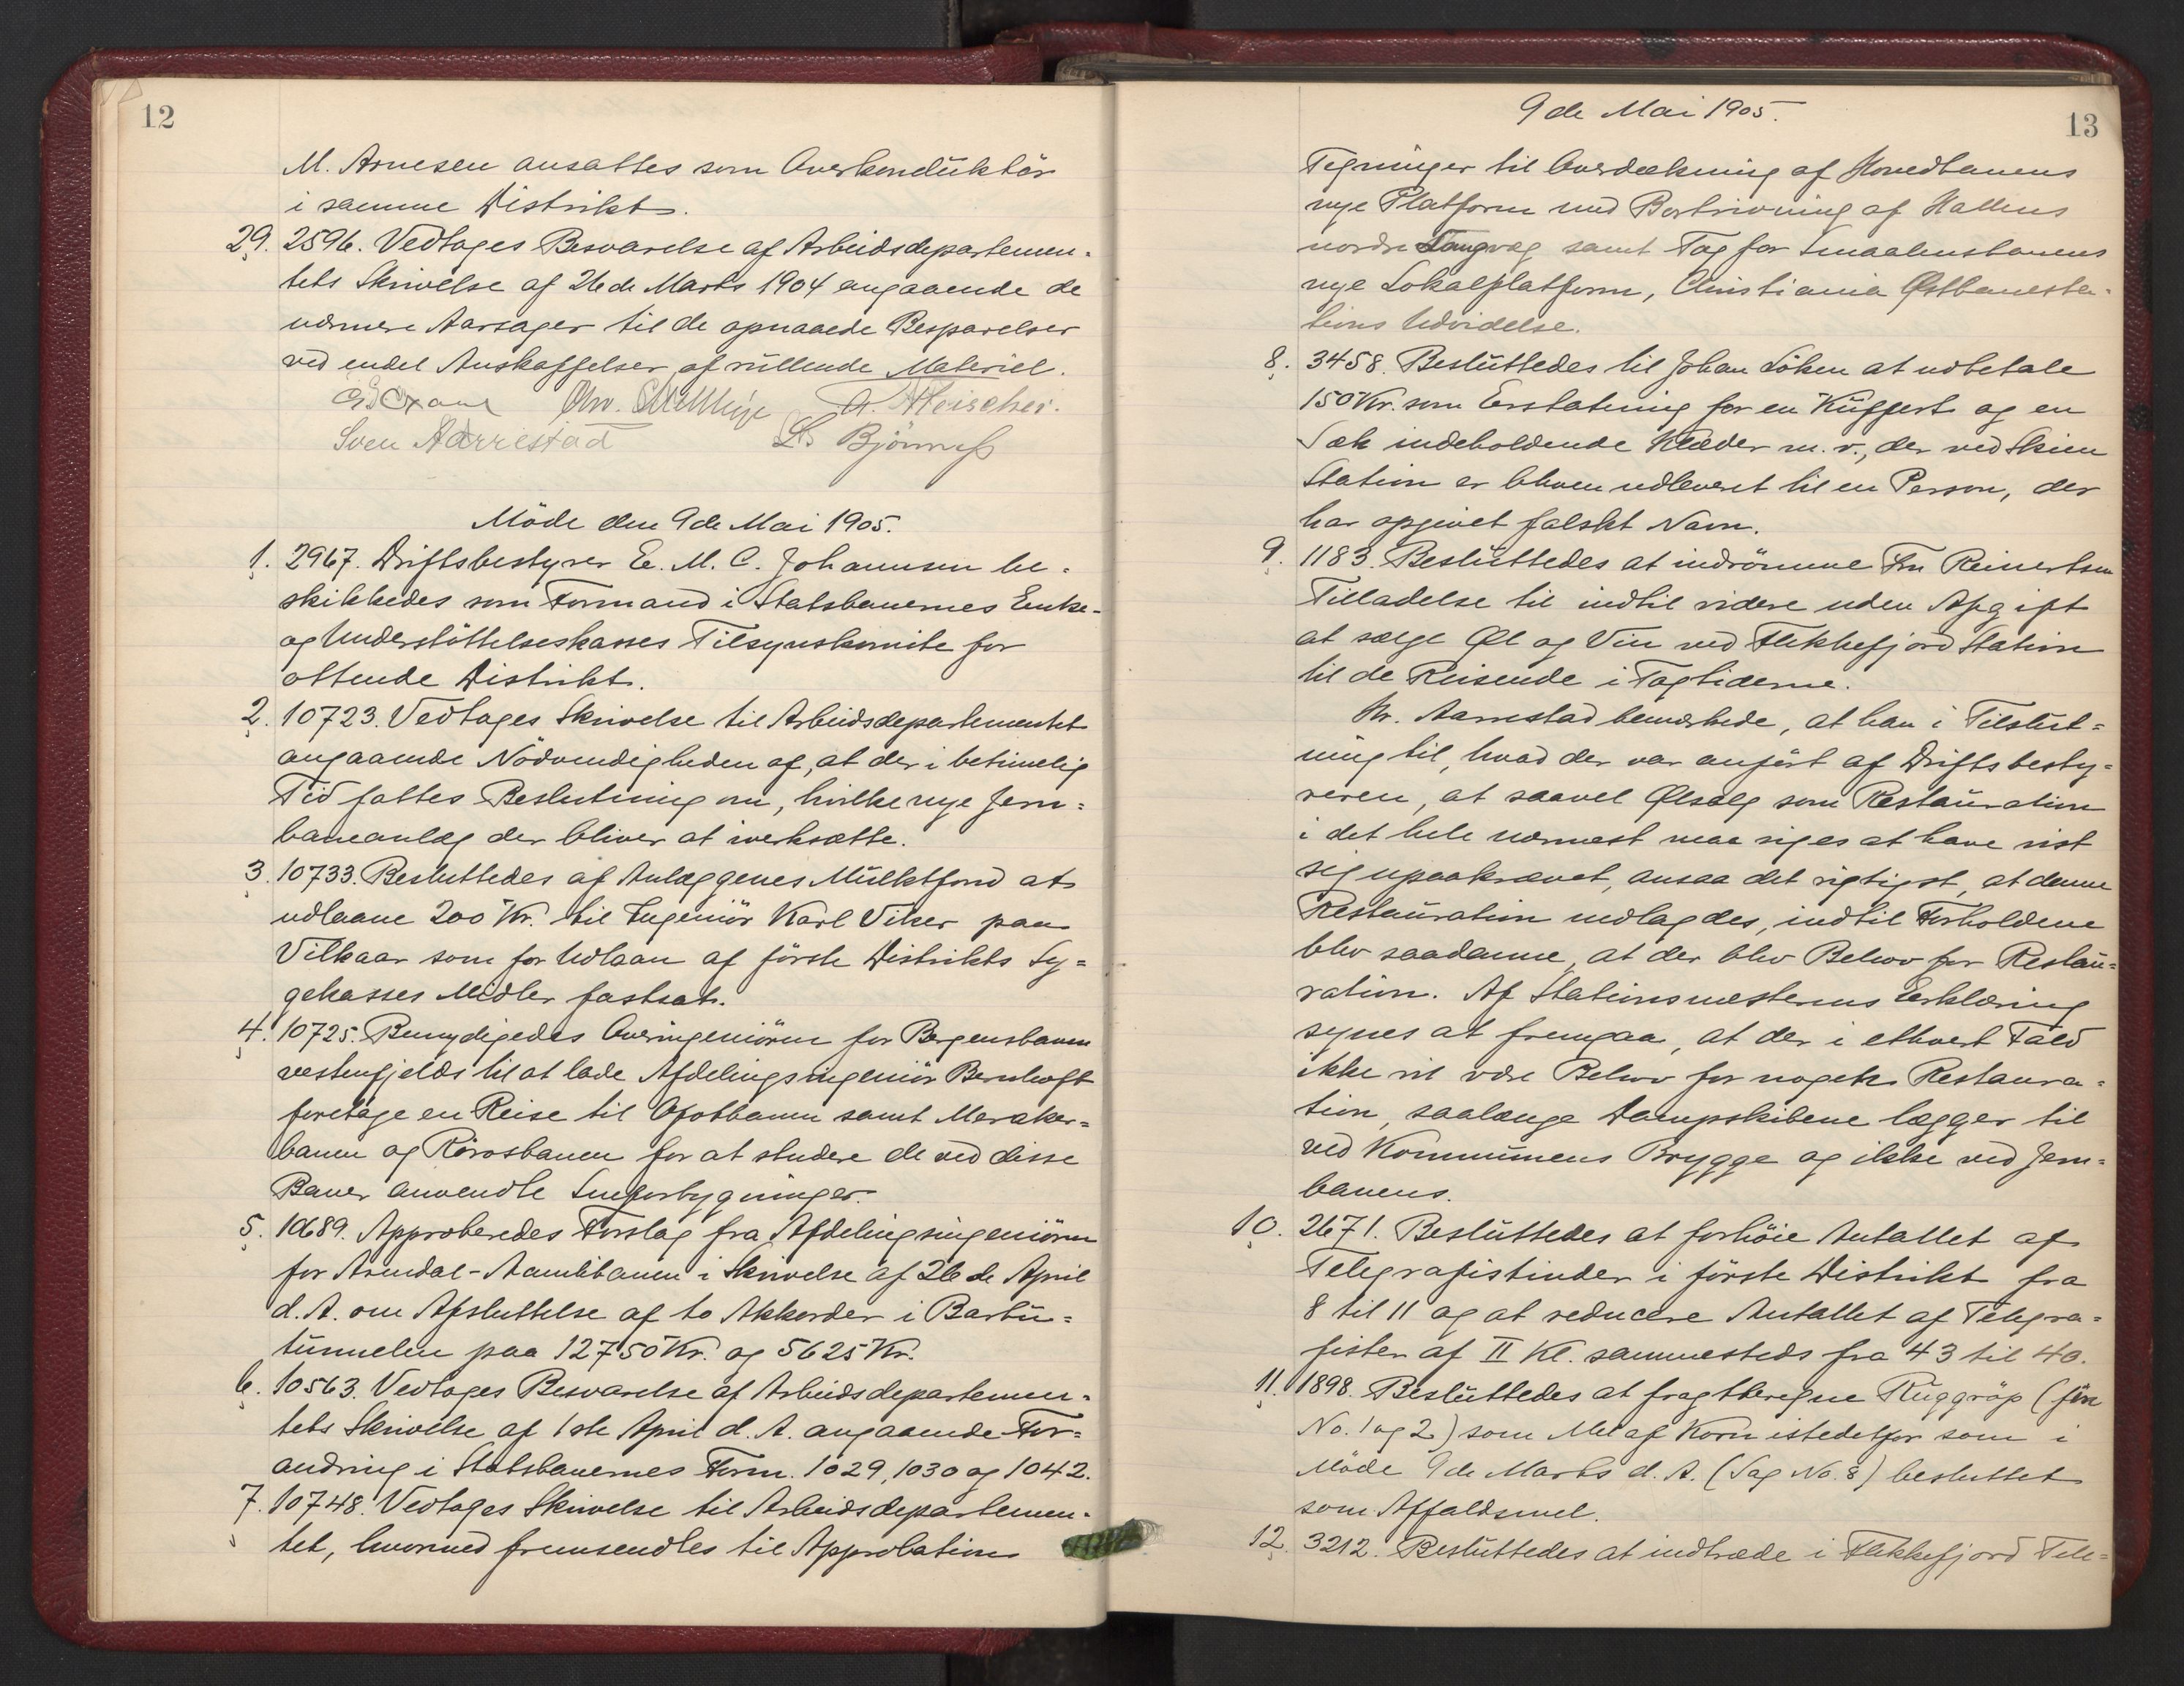 12
M. Arnesen ansattes som Overkonduktör
i samme Distrikt.
29. 2596. Vedtoges Besvarelse af Arbeidsdepartemen-
tets Skrivelse af 26de Marts 1904 angaaende de
nærmere Aarsager til de opnaaede Besparelser
ved endel Anskaffelser af rullende Materiel.
Chr. A. Fleischer.
Sven Aarrestad Bjørnness
Möde den 9de Mai 1905.
1. 2967. Driftsbestyrer E. M. C. Johannsen be-
skikkedes som Formand i Statsbanernes Enke-
og Understöttelseskasses Tilsynskomite for
ottende Distrikt.
2. 10723. Vedtoges Skrivelse til Arbeidsdepartementet
angaaende Nödvendigheden af, at der i betimelig
Tid fattes Beslutning om, hvilke nye Jern=
baneanlæg der bliver at iverksætte.
3. 10733. Besluttedes af Anlæggenes Mulktfond at
udlaane 200 Kr. til Ingeniör Karl Viker paa
Vilkaar som for Udlaan af förste Distrikts Sy=
gekasses Midler fastsat.
4. 10725. Bemydigedes Overingeniören for Bergensbanen
vestenfjelds til at lade Afdelingsingeniör Bernhoft
foretage en Reise til Ofotbanen samt Meraker=
banen og Rörosbanen for at studere de ved disse
Baner anvendte Sneforbygninger.
5. 10689. Approberedes Forslag fra Afdelingsingeniören
for Arendal-Aamlibanen i Skrivelse af 26de April
d. A. om Afsluttelse af to Akkorder i Barbu=
tunnelen paa 12750 Kr. og 5625 Kr.
6. 10563. Vedtoges Besvarelse af Arbeidsdepartemen-
tets Skrivelse af 1ste April d. A. angaaende For=
andring i Statsbanernes Form. 1029, 1030 og 1042.
7. 10748. Vedtoges Skrivelse til Arbeidsdepartemen-
tet, hvormed fremsendtes til Approbation
9de Mai 1905.
13
Tegninger til Overdækning af Hovedbanens
nye Platform med Bortrivning af Hallens
nordre Langvæg samt Tag for Smaalensbanens
nye Lokalplatform, Christiania Østbanesta-
tions Udvidelse.
8. 3458. Besluttedes til Johan Löken at udbetale
150 Kr. som Erstatning for en Kuffert og en
Sæk indeholdende Klæder m. v., der ved Skien
Station er bleven udleveret til en Person, der
har opgivet falskt Navn.
9. 1183. Besluttedes at indrömme Fru Reinertsen
Tilladelse til indtil videre uden Afgift
at sælge Øl og Vin ved Flekkefjord Station
til de Reisende i Togtiderne.
Hr. Aarrestad bemerkede, at han i Tilslut=
ning til, hvad der var anfört af Driftsbesty=
reren, at saavel Ølsalg som Restauration
i det hele nærmest maa siges at have vist
sig upaakrævet, ansaa det rigtigst, at denne
Restauration nedlagdes, indtil Forholdene
blev saadanne, at der blev Behov for Restau=
ration. Af Stationsmesterens Erklæring
synes at fremgaa, at der i ethvert Fald
ikke vil være Behov for nogen Restaura=
tion, saalænge Dampskibene lægger til
ved Kommunens Brygge og ikke ved Jern=
banens.
10. 2671. Besluttedes at forhöie Antallet af
Telegrafistinder i förste Distrikt fra
8 til 11 og at reducere Antallet af Telegra=
fister af II Kl. sammesteds fra 43 til 40.
11. 1898. Besluttedes at fragtberegne Ruggröp (fin
No. 1 og 2) som Mel af Korn istedetfor som i
Möde 9de Marts d. A. (Sag No. 8) besluttet
som Affaldsmel.
12. 3212. Besluttedes at indtræde i Flekkefjord Tele=